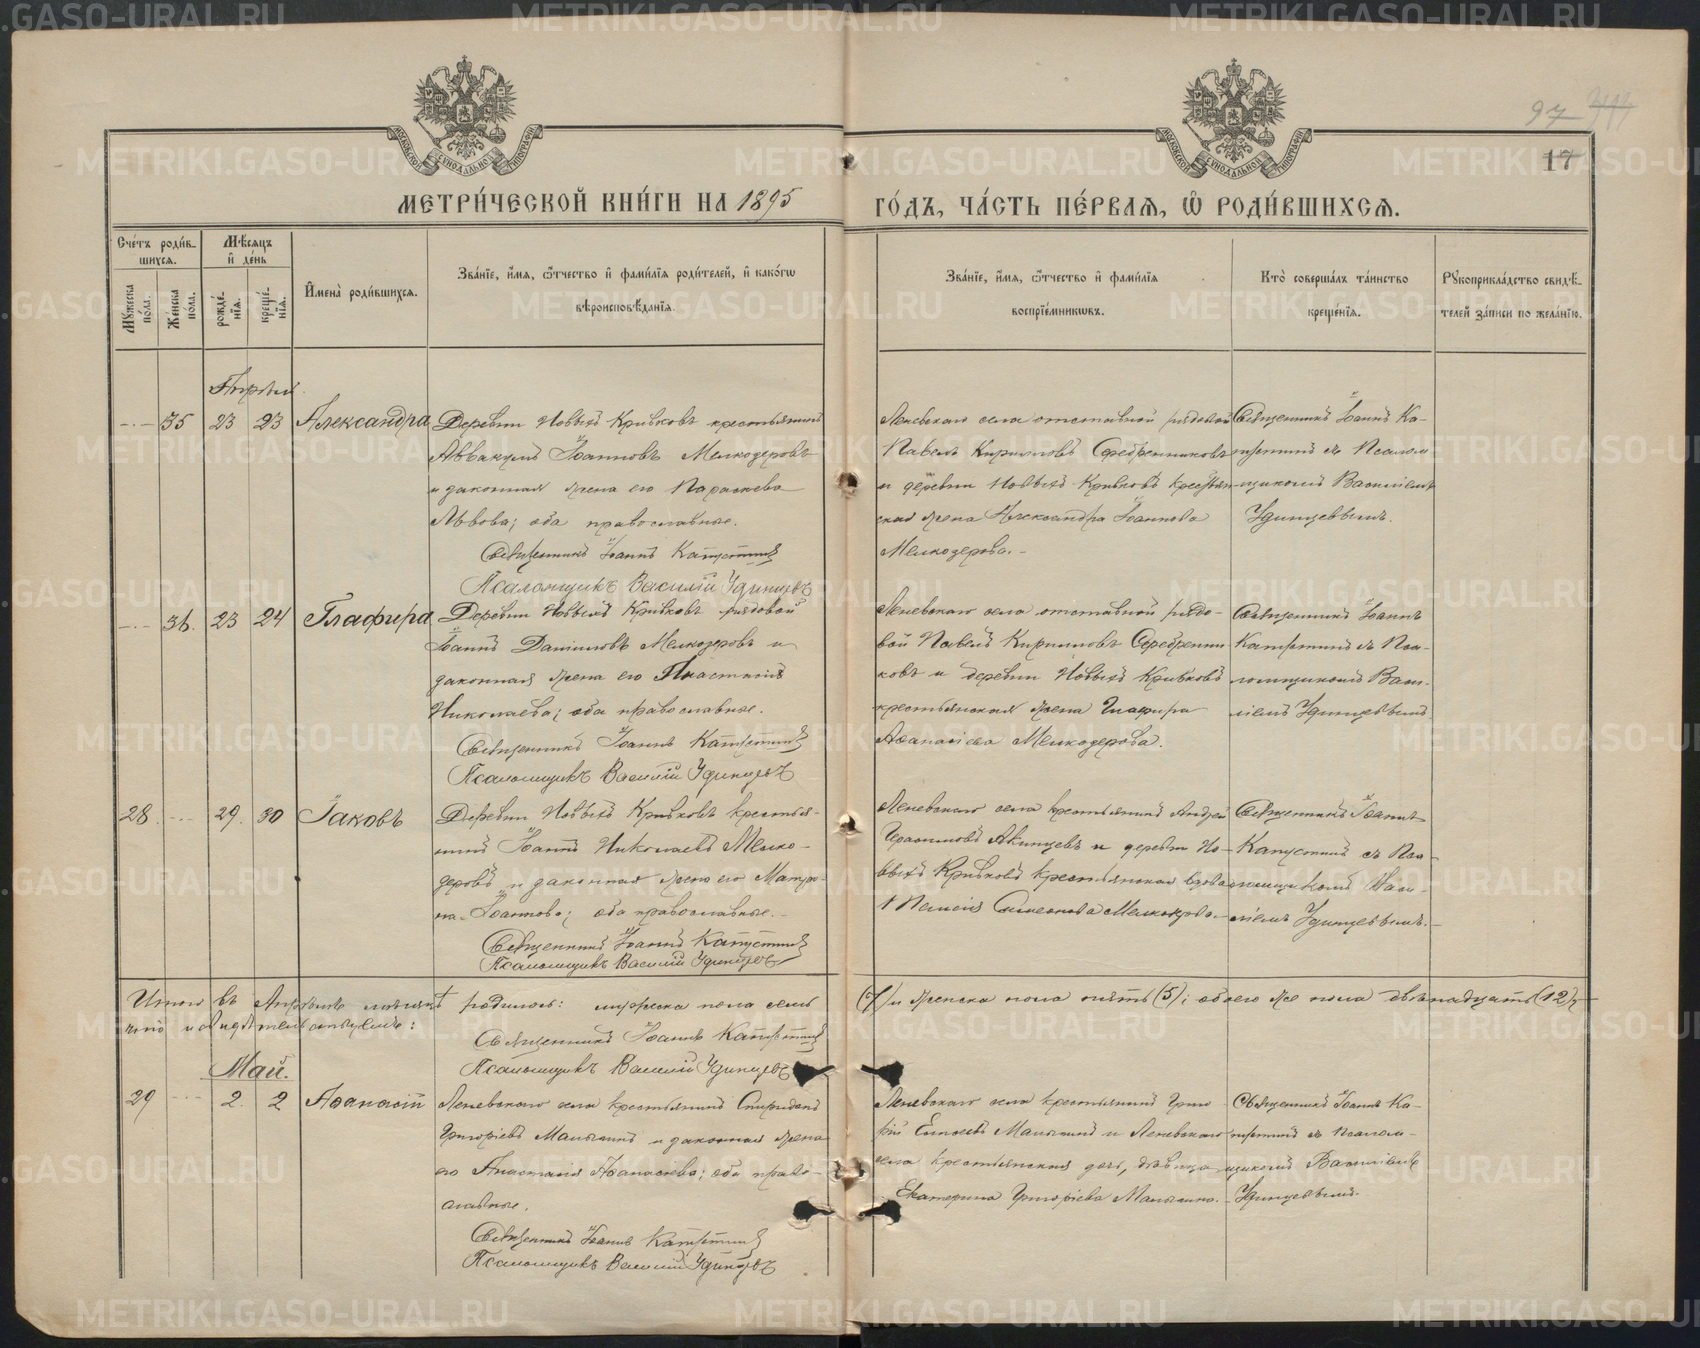 METRIKI.GASO-URAL.RU
97
17
МОСКОВСКОЙ СѴНОДАЛЬНОЙ ТИПОГРАФІИ
МОСКОВСКОЙ СѴНОДАЛЬНОЙ ТИПОГРАФІИ
МЕТРИ́ЧЕСКОЙ КНИ́ГИ НА 1895 ГО́ДЪ, ЧА́СТЬ ПЕ́РВАѦ, Ѿ РОДИ́ВШИХСѦ.
Сче́тъ роди́в-
шихсѧ.
Мꙋ́жеска по́ла.
Же́нска по́ла.
Мѣ́сѧцъ и҆ де́нь
рожде́-нїѧ.
креще́-нїѧ.
И҆мена̀ роди́вшихсѧ.
Зва́нїе, и҆́мѧ, ѻ҆́тчество и҆ фами́лїѧ роди́телей, и҆ како́гѡ
вѣроисповѣ́данїѧ.
Зва́нїе, и҆́мѧ, ѻ҆́тчество и҆ фами́лїѧ
воспрїе́мникѡвъ.
Кто̀ соверша́лъ та́инство
креще́нїѧ.
Рꙋкоприкла́дство свидѣ́-
телей за́писи по жела́нїю.
35 23 23 Александра
Деревни Новыхъ Кривковъ крестьянинъ
Аввакумъ Іоанновъ Мелкозеровъ
и законная жена его Параскева
Львова; оба православные.
Священникъ Іоаннъ Капустинъ
Псаломщикъ Василій Удинцевъ
Леневскаго села отставной рядовой
Павелъ Кирилловъ Серебренниковъ
и деревни Новыхъ Кривковъ крестьян-
ская жена Александра Іоаннова
Мелкозерова.
Священникъ Іоаннъ Ка-
пустинъ съ Псалом-
щикомъ Василіемъ
Удинцевымъ.
36. 23 24 Глафира
Деревни Новыхъ Кривковъ рядовой
Іоаннъ Даніиловъ Мелкозеровъ и
законная жена его Анастасія
Николаева; оба православные.
Священникъ Іоаннъ Капустинъ
Псаломщикъ Василій Удинцевъ
Леневскаго села отставной рядо-
вой Павелъ Кирилловъ Серебренни
ковъ и деревни Новыхъ Кривковъ
крестьянская жена Глафира
Аѳанасіева Мелкозерова.
Священникъ Іоаннъ
Капустинъ съ Пса-
ломщикомъ Васи-
ліемъ Удинцевымъ.
28. 29. 30 Іаковъ
Деревни Новыхъ Кривковъ крестья-
нинъ Іоаннъ Николаевъ Мелко-
зеровъ и законная жена его Матро-
на Іоаннова; оба православные.
Священникъ Іоаннъ Капустинъ
Псаломщикъ Василій Удинцевъ
Леневскаго села крестьянинъ Андрей
Акинцевъ и деревни Но-
выхъ Кривковъ крестьянская вдова
Симеонова Мелкозерова.
Священникъ Іоаннъ
Капустинъ съ Пса-
ломщикомъ Васи-
ліемъ Удинцевымъ.
Итого въ Апрѣлѣ мѣсяцѣ родилось: мужеска пола семь (7) и женска пола пять (5); обоего же пола двѣнадцать (12),
что и свидѣтельствуемъ:
Священникъ Іоаннъ Капустинъ
Псаломщикъ Василій Удинцевъ
Май.
29 2. 2 Аѳанасій
Леневскаго села крестьянинъ Спиридонъ
Григорьевъ Малыгинъ и законная жена
его Анастасія Аѳанасіева; оба право-
славные.
Священникъ Іоаннъ Капустинъ
Псаломщикъ Василій Удинцевъ
Леневскаго села крестьянинъ Григо
рій Малыгинъ и Леневскаго
села крестьянская дочь, дѣвица
Екатерина Григоріева Малыгина.
Священникъ Іоаннъ Ка-
пустинъ съ Псалом-
щикомъ Василіемъ
Удинцевымъ.